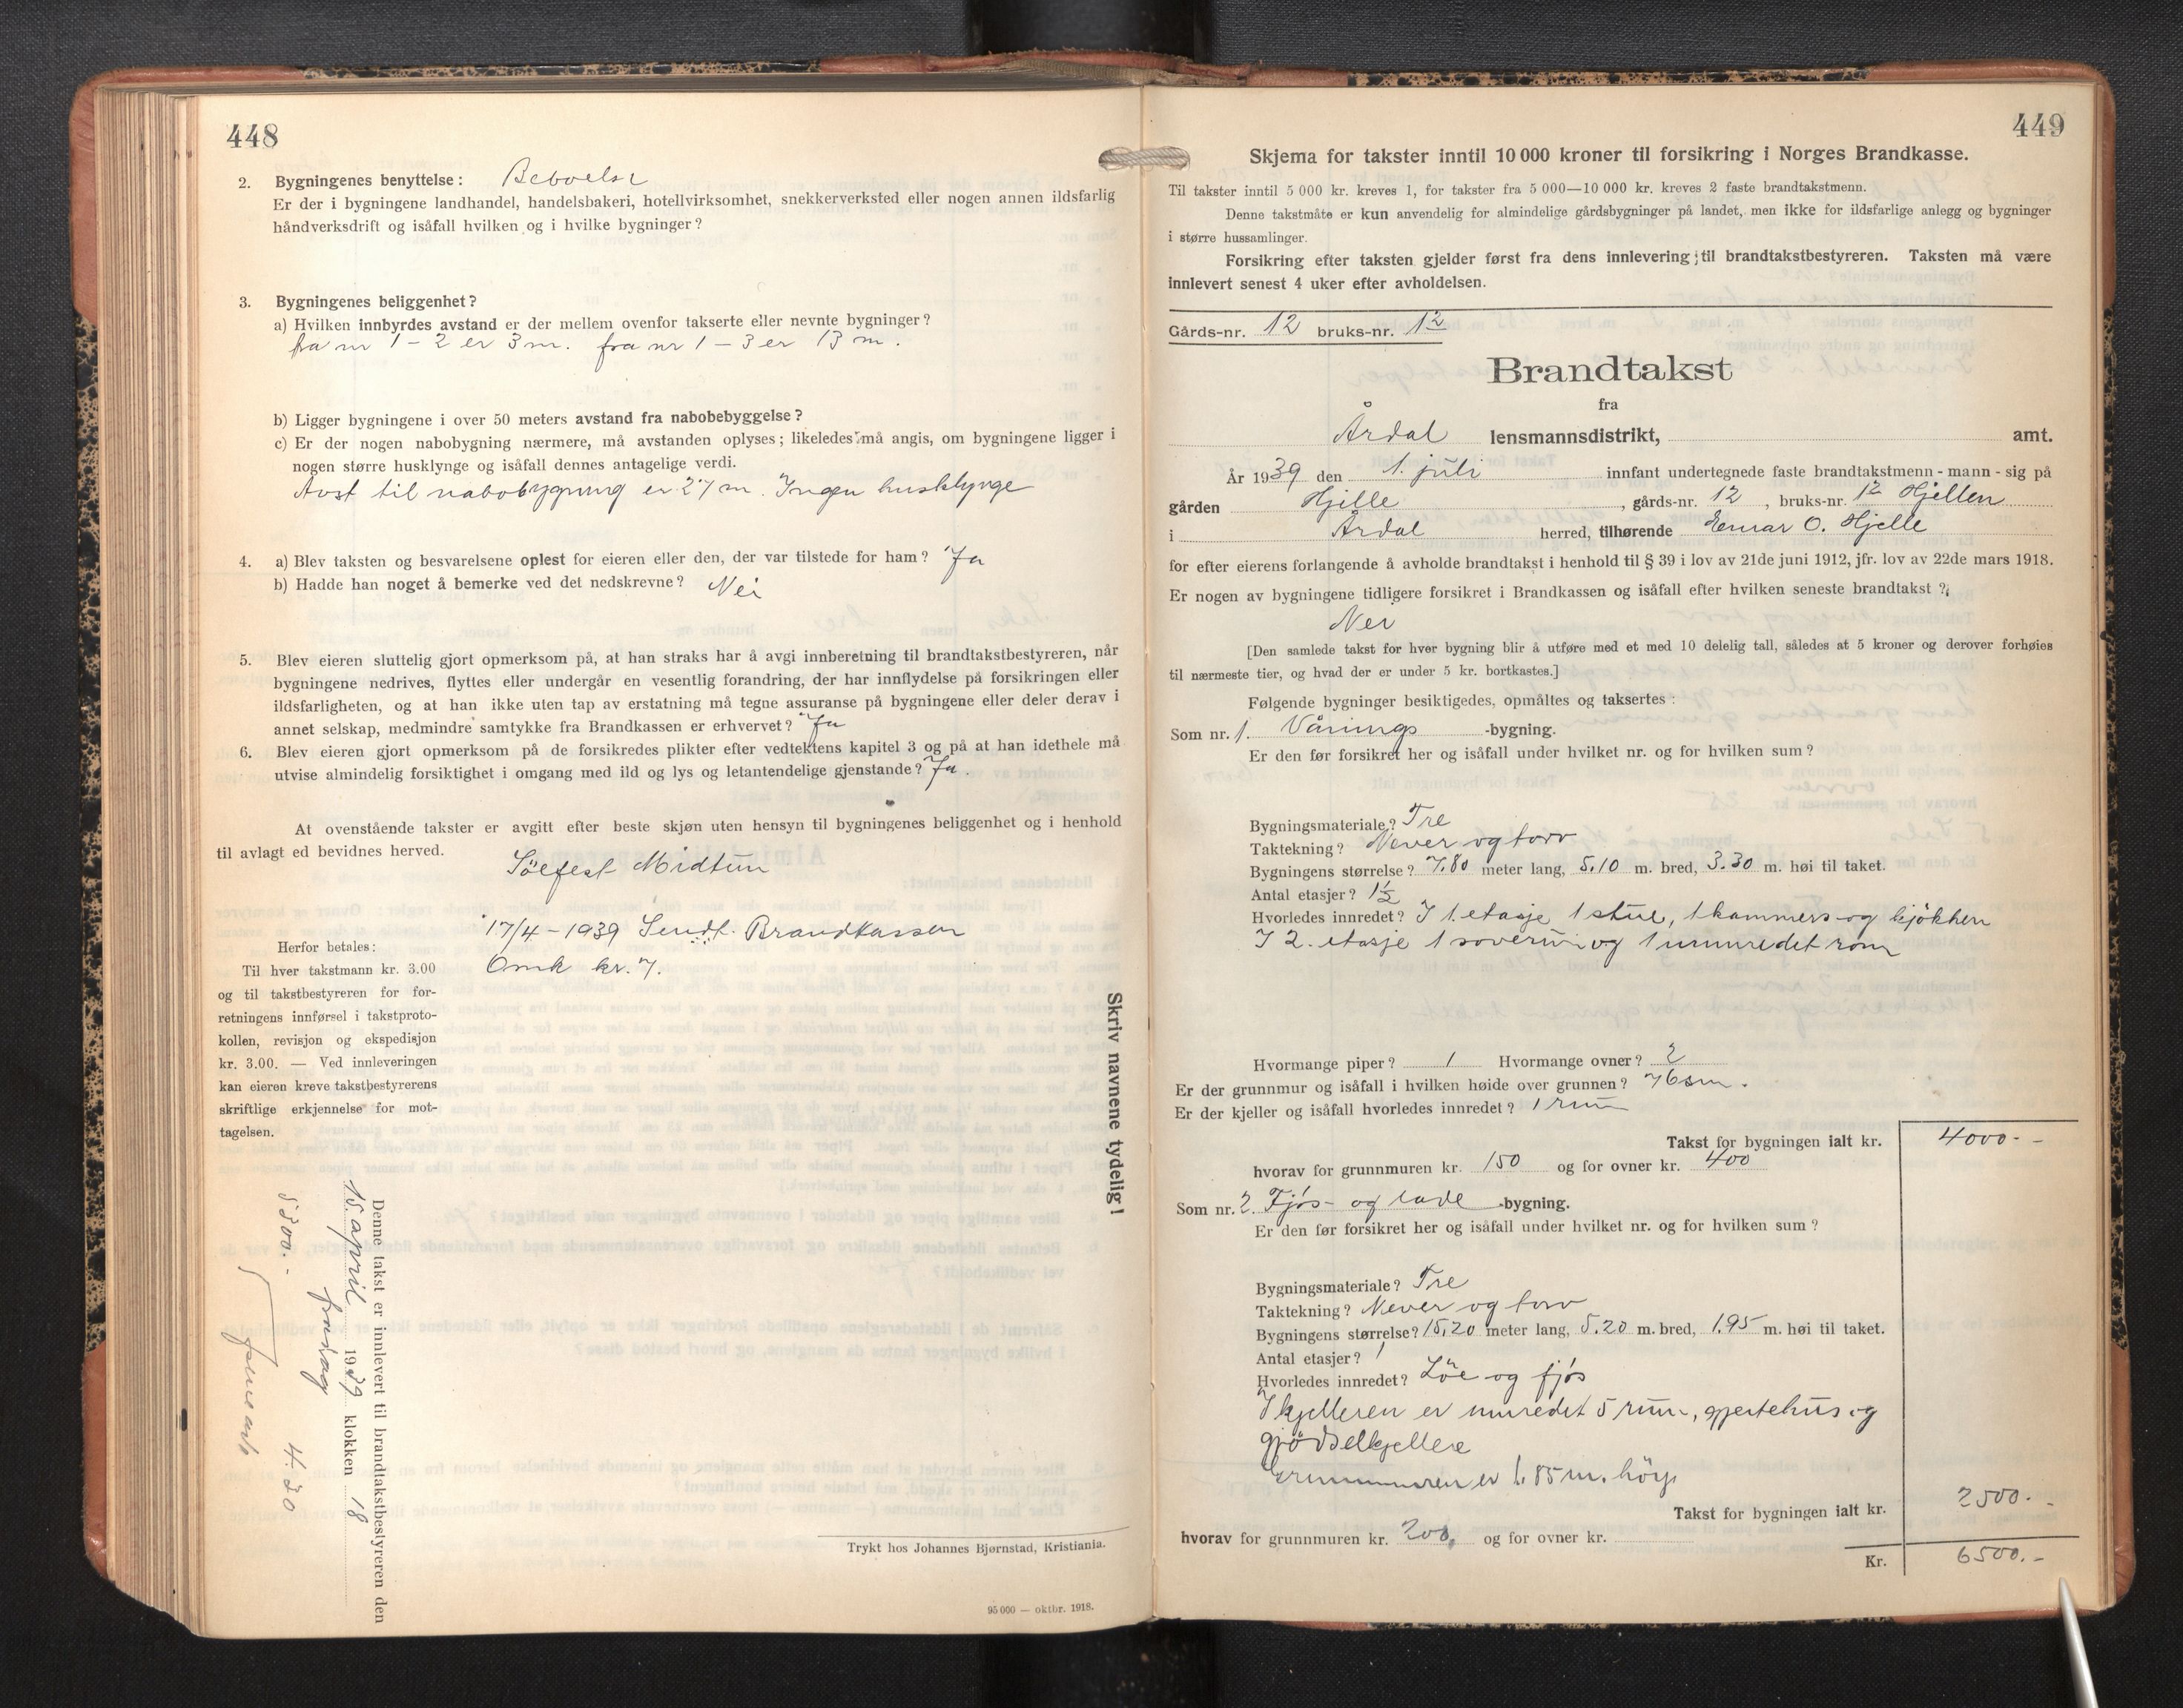 448
2. Bygningenes benyttelse: Beboelse
Er der i bygningene landhandel, handelsbakeri, hotellvirksomhet, snekkerverksted eller nogen annen ildsfarlig
håndverksdrift og isåfall hvilken og i hvilke bygninger?
3. Bygningenes beliggenhet?
a) Hvilken innbyrdes avstand er der mellem ovenfor takserte eller nevnte bygninger?
fra nr 1 - 2 er 3 m. fra nr 1 - 3 er 13 m.
b) Ligger bygningene i over 50 meters avstand fra nabobebyggelse?
c) Er der nogen nabobygning nærmere, må avstanden oplyses; likeledes må angis, om bygningene ligger i
nogen større husklynge og isåfall dennes antagelige verdi.
Avst til nabobygning er 27 m. Ingen husklynge
4. a) Blev taksten og besvarelsene oplest for eieren eller den, der var tilstede for ham? Ja
b) Hadde han noget å bemerke ved det nedskrevne? Nei
5. Blev eieren sluttelig gjort opmerksom på, at han straks har å avgi innberetning til brandtakstbestyreren, når
bygningene nedrives, flyttes eller undergår en vesentlig forandring, der har innflydelse på forsikringen eller
ildsfarligheten, og at han ikke uten tap av erstatning må tegne assuranse på bygningene eller deler derav i
annet selskap, medmindre samtykke fra Brandkassen er erhvervet? Ja
6. Blev eieren gjort opmerksom på de forsikredes plikter efter vedtektens kapitel 3 og på at han idethele må
utvise almindelig forsiktighet i omgang med ild og lys og letantendelige gjenstande? Ja.
At ovenstående takster er avgitt efter beste skjøn uten hensyn til bygningenes beliggenhet og i henhold
til avlagt ed bevidnes herved.
Sölfest Midtun
17/4 - 1939 Sendt. Brandkassen
Omk kr. 7.
Herfor betales:
Til hver takstmann kr. 3.00
og til takstbestyreren for for-
retningens innførsel i takstproto-
kollen, revisjon og ekspedisjon
kr. 3.00. — Ved innleveringen
kan eieren kreve takstbestyrerens
skriftlige erkjennelse for mot-
tagelsen.
Skriv navnene tydelig!
Denne takst er innlevert til brandtakstbestyreren den
15. april 1939 klokken 18
4.20
Trykt hos Johannes Bjørnstad, Kristiania.
95 000 — oktbr. 1918.
449
Skjema for takster inntil 10 000 kroner til forsikring i Norges Brandkasse.
Til takster inntil 5 000 kr. kreves 1, for takster fra 5 000—10 000 kr. kreves 2 faste brandtakstmenn.
Denne takstmåte er kun anvendelig for almindelige gårdsbygninger på landet, men ikke for ildsfarlige anlegg og bygninger
i større hussamlinger.
Forsikring efter taksten gjelder først fra dens innlevering til brandtakstbestyreren. Taksten må være
innlevert senest 4 uker efter avholdelsen.
Gårds-nr. 12 bruks-nr. 12
Brandtakst
fra
Årdal lensmannsdistrikt, amt.
År 1939 den 1. juli innfant undertegnede faste brandtakstmenn - mann - sig på
gården Hjelle, gårds-nr. 12, bruks-nr. 12 Hjellen
i Årdal herred, tilhørende Einar O. Hjelle
for efter eierens forlangende å avholde brandtakst i henhold til § 39 i lov av 21de juni 1912, jfr. lov av 22de mars 1918.
Er nogen av bygningene tidligere forsikret i Brandkassen og isåfall efter hvilken seneste brandtakst?
Nei
[Den samlede takst for hver bygning blir å utføre med et med 10 delelig tall, således at 5 kroner og derover forhøies
til nærmeste tier, og hvad der er under 5 kr. bortkastes.]
Følgende bygninger besiktigedes, opmåltes og taksertes:
Som nr. 1. Vånings -bygning.
Er den før forsikret her og isåfall under hvilket nr. og for hvilken sum?
Bygningsmateriale? Tre
Taktekning? Never og torv
Bygningens størrelse? 7.80 meter lang, 5.10 m. bred, 3.30 m. høi til taket.
Antal etasjer? 1½
Hvorledes innredet? I 1. etasje 1 stue, 1 kammers og kjökken
I 2. etasje 1 soverum og 1 uinnredet rom
Hvormange piper? 1 Hvormange ovner? 2
Er der grunnmur og isåfall i hvilken høide over grunnen? 76 sm.
Er der kjeller og isåfall hvorledes innredet? 1 rum
Takst for bygningen ialt kr. 4000.-
hvorav for grunnmuren kr. 150 og for ovner kr. 400
Som nr. 2. Fjös- og lade -bygning.
Er den før forsikret her og isåfall under hvilket nr. og for hvilken sum?
Bygningsmateriale? Tre
Taktekning? Never og torv
Bygningens størrelse? 15,20 meter lang, 5.20 m. bred, 1.95 m. høi til taket.
Antal etasjer? 1
Hvorledes innredet? Löe og fjös
I kjelleren er innredet 5 rum, gjeitehus og
gjödselkjellere
Grunnmuren er 1.85 m. höy.
Takst for bygningen ialt kr. 2500.-
hvorav for grunnmuren kr. 200, og for ovner kr.
Kr. 6500.-